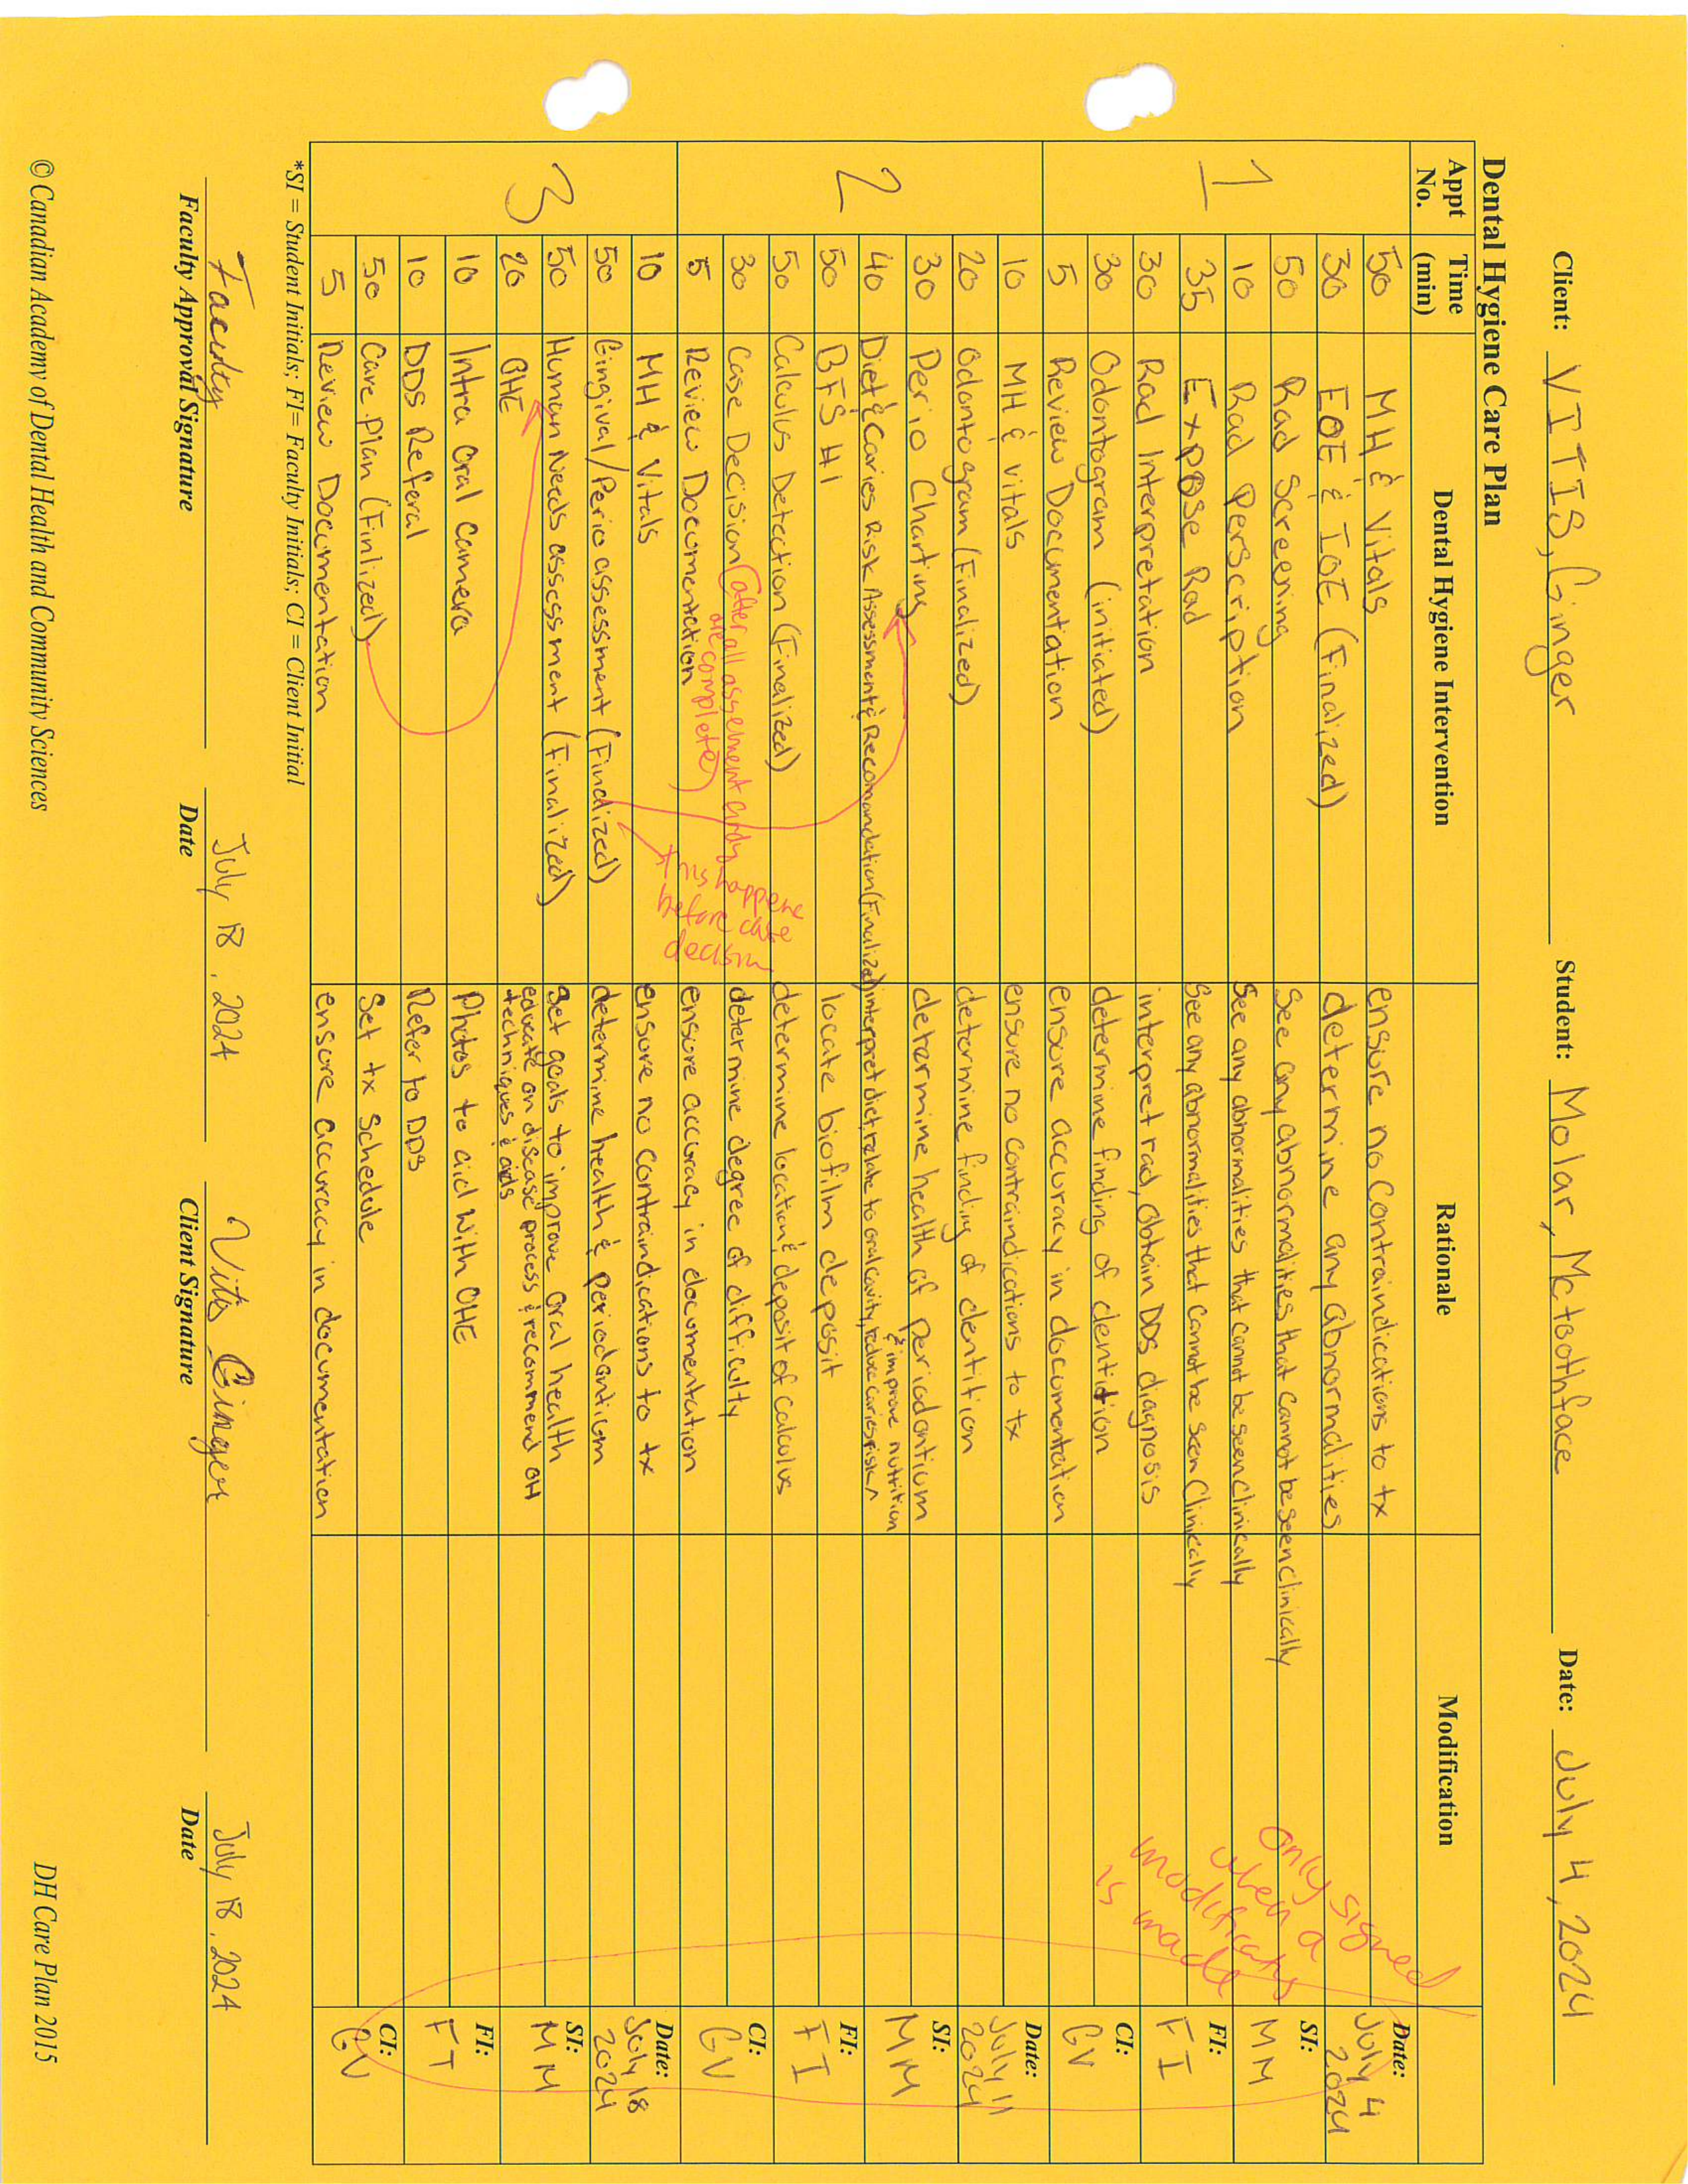 Client: VITIS, Ginger Student: Molar, Mctoothface Date: July 4, 2024
Dental Hygiene Care Plan
Appt No. Time (min) Dental Hygiene Intervention Rationale Modification
1
50 MH & Vitals ensure no contraindications to tx
30 EOE & IOE (Finalized) determine any abnormalities
50 Rad Screening See any abnormalities that cannot be seen clinically
10 Rad Perscription See any abnormalities that cannot be seen clinically
35 Expose Rad See any abnormalities that cannot be seen Clinically
30 Rad Interpretation interpret rad, obtain DDS diagnosis
30 Odontogram (initiated) determine finding of dentition
5 Review Documentation ensure accuracy in documentation
Date: July 4 2024
SI: MM
FI: FI
CI: GV
only signed when a modification is made
2
10 MH & vitals ensure no contraindications to tx
20 Odontogram (Finalized) determine finding of dentition
30 Perio Charting determine health of periodontium
40 Diet & Caries Risk Assessment & Recomandation (Finalized) interpret diet, relate to oral cavity, reduce caries risk ^ & improve nutrition
50 BFS HI locate biofilm deposit
50 Calculus Detection (Finalized) determine location & deposit of calculus
30 Case Decision (after all assessment are complete) determine degree of difficulty
5 Review Documentation ensure accuracy in documentation
Date: July 11 2024
SI: MM
FI: FI
CI: GV
this happens before case decision
3
10 MH & Vitals ensure no contraindications to tx
50 Gingival/Perio assessment (Finalized) determine health & periodontium
50 Human Needs assessment (Finalized) Set goals to improve oral health
20 OHE educate on disease process & recommend OH techniques & aids
10 Intra Oral Camera Photos to aid with OHE
10 DDS Referal Refer to DDS
50 Care Plan (Finlized) Set tx schedule
5 Review Documentation ensure accuracy in documentation
Date: July 18 2024
SI: MM
FI: FI
CI: GV
*SI = Student Initials; FI= Faculty Initials; CI = Client Initial
Faculty July 18, 2024 Vitis Ginger July 18, 2024
Faculty Approval Signature Date Client Signature Date
© Canadian Academy of Dental Health and Community Sciences DH Care Plan 2015